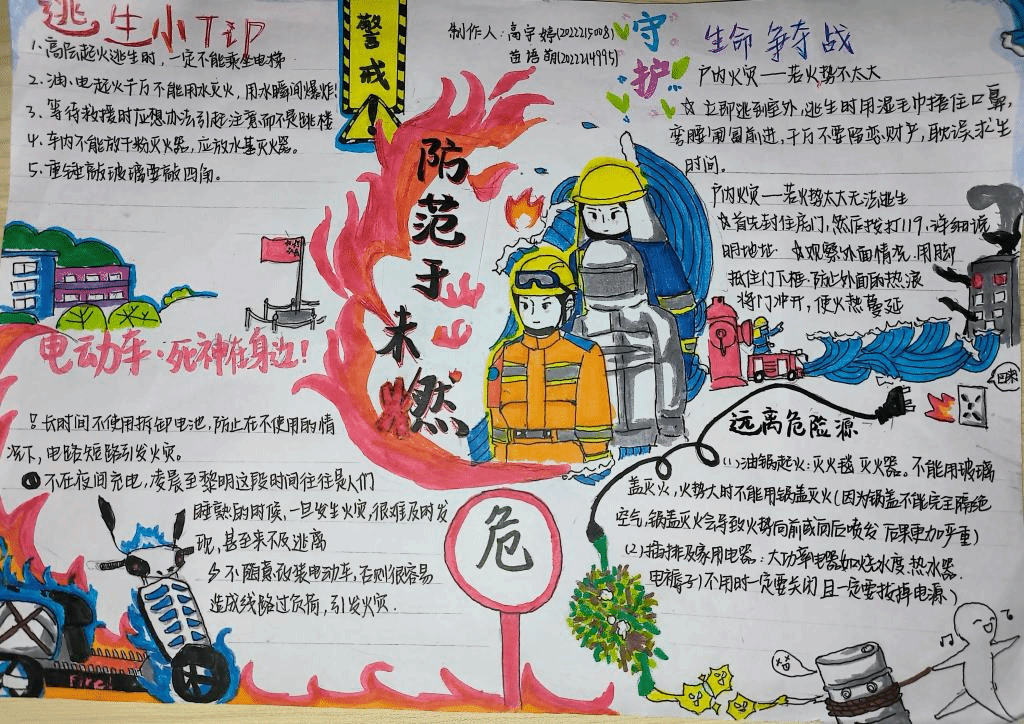 逃生小TIP
1、高层起火逃生时，一定不能乘坐电梯
2、油、电起火千万不能用水灭火，用水瞬间爆炸!
3、等待救援时应想办法引起注意而不是跳楼
4、车内不能放干粉灭火器，应放水基灭火器。
5、重锤敲玻璃要敲四角。
警戒
!
制作人：高宇婷(2022215008)
苗语萌(2022214995)
守护
生命争夺战
户内火灾——若火势不太大
☆立即逃到室外，逃生时用湿毛巾捂住口鼻，
弯腰匍匐前进，千万不要陪恋财产，耽误求生
时间。
户内火灾——若火势太大无法逃生
☆首先封住房门，然后拨打119，详细说
明地址 ☆观察外面情况，用脚
抵住门下框，防止外面的热浪
将门冲开，使火热蔓延
防范于未燃
电动车·死神在身边!
长时间不使用拆卸电池，防止在不使用的情
况下，电路短路引发火灾。
不在夜间充电，凌晨至黎明这段时间往往是人们
睡熟的时候，一旦发生火灾，很难及时发
现，甚至来不及逃离
不随意改装电动车，否则很容易
造成线路过负荷，引发火灾.
Fire!
危
远离危险源
(1)油锅起火：灭火毯 灭火器。不能用玻璃
盖灭火，火势大时不能用锅盖灭火(因为锅盖不能完全隔绝
空气，锅盖灭火会导致火势向前或向后喷发 后果更加严重)
(2)插排及家用电器：大功率电器如烧水度、热水器.
电褥子)不用时一定要关闭且一定要拔掉电源)